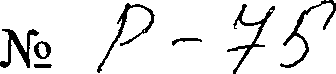 № Р-75